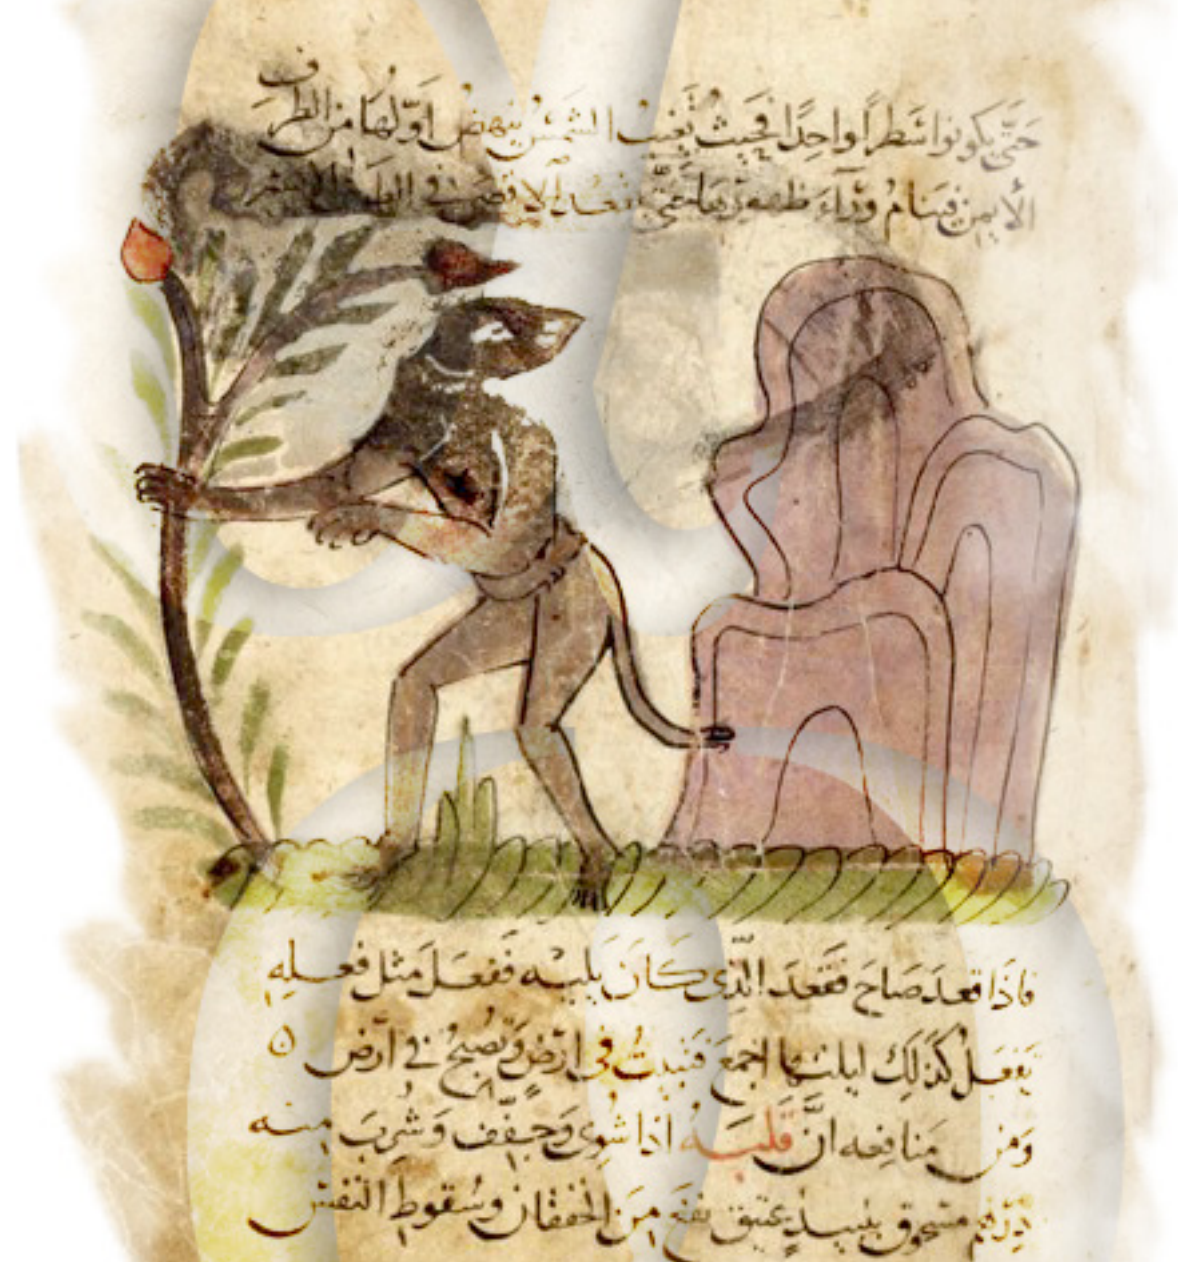 حَتَّى يكونوا شَطرًا واحِدًا فحيث تَغيبُ الشَّمْسُ ينهضُ اَوّلهَا مِن الطرَف
الايمن فينامُ وَرَآءَ
فاذَا قعدَ صَاحَ فَقَعَدَ الَّذِى كَانَ يليْه فَفعَلَ مثل فعله
يَفعَلُ كَذَلِكَ ليلتها اجمعَ فتبيتُ فى ارْضٍ وَتصْبحُ فى اَرْض ۵
وَمن مَنافعه انَّ قَلبَهُ اذا شُوِى وَجفّف وَشُرِبَ منه
دِرْهم مسْحوق بنبيذٍ عتيق نفعَ مِنَ الخفقان وَسُقوط النَّفس